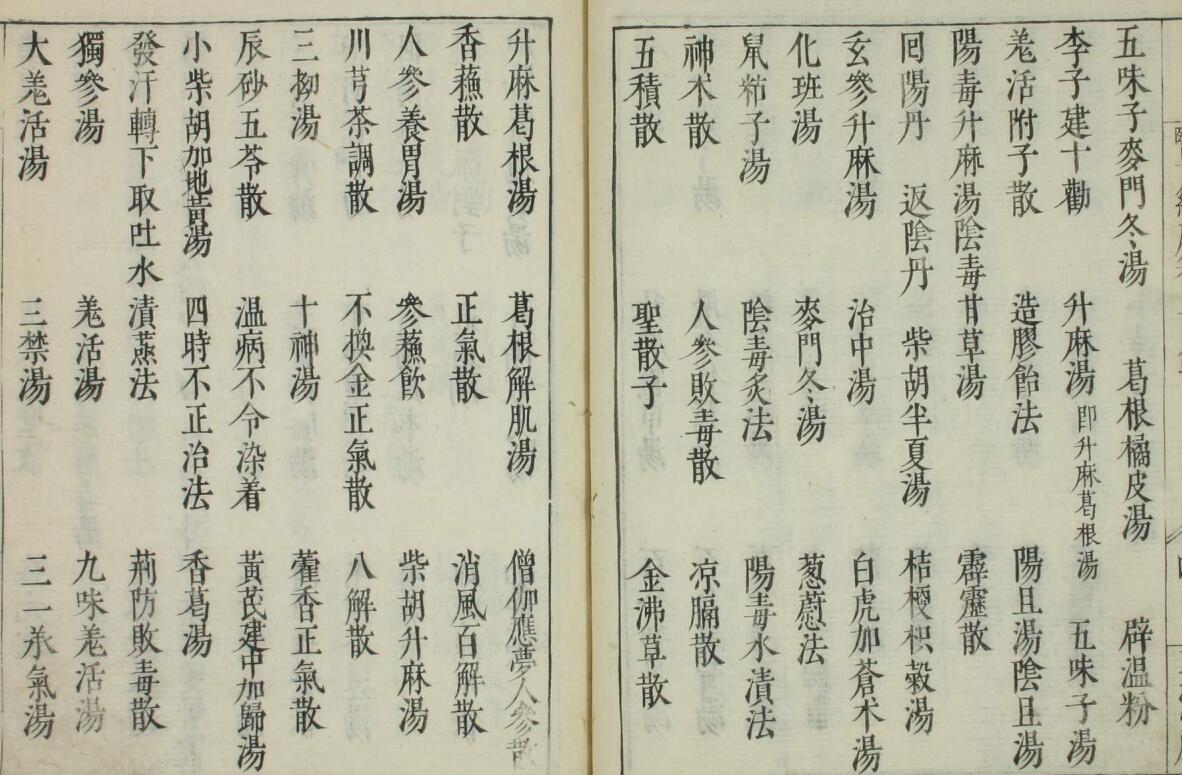 五味子麥門冬湯 葛根橘皮湯 辟温粉
李子建十勸 升麻湯即升麻葛根湯 五味子湯
羌活附子散 造膠飴法 陽旦湯陰旦湯
陽毒升麻湯陰毒甘草湯 霹靂散
囘陽丹 返陰丹 柴胡半夏湯 桔梗枳殼湯
玄參升麻湯 治中湯 白虎加蒼朮湯
化班湯 麥門冬湯 葱熨法
鼠粘子湯 陰毒炙法 陽毒水漬法
神朮散 人參敗毒散 凉膈散
五積散 聖散子 金沸草散
升麻葛根湯 葛根解肌湯 僧伽應夢人參散
香蘓散 正氣散 消風百解散
人參養胃湯 參蘓飲 柴胡升麻湯
川芎茶調散 不換金正氣散 八解散
三拗湯 十神湯 藿香正氣散
辰砂五苓散 温病不令染着 黃芪建中加歸湯
小柴胡加地黃湯 四時不正治法 香葛湯
發汗轉下取吐水漬蒸法 荊防敗毒散
獨參湯 羌活湯 九味羌活湯
大羌活湯 三禁湯 三一承氣湯